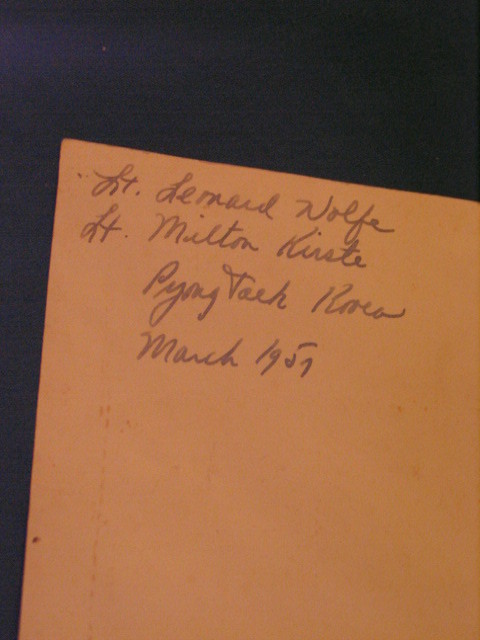 Lt. Leonard Wolfe
Lt. Milton Kirste
Pyong Taek Korea
March 1951